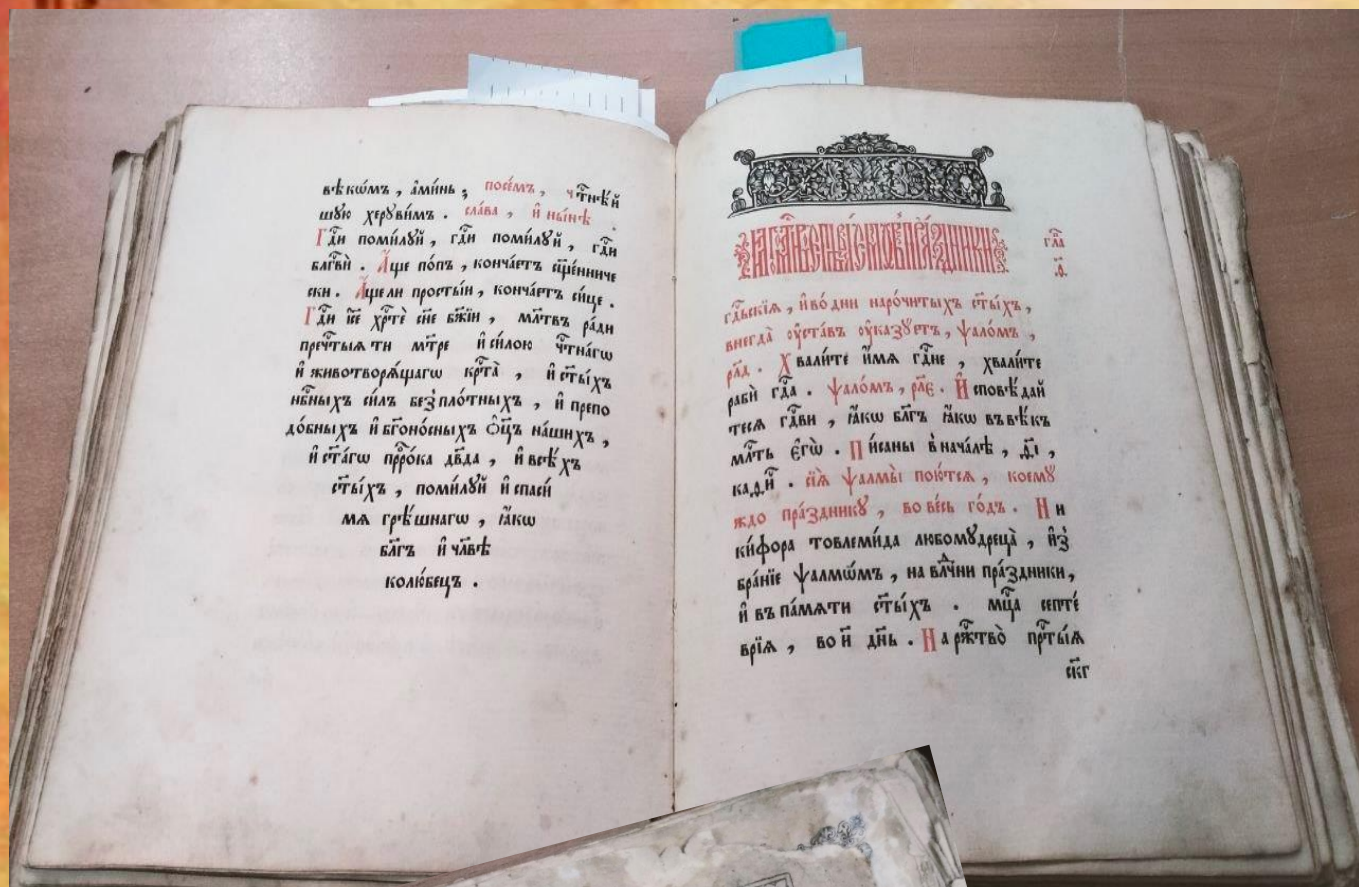 вѣкѡмъ , а҆ми́нь , посе́мъ , чⷭ҇тнѣ́й
шꙋю херꙋви́мъ . сла́ва , и҆ ны́нѣ .
Гдⷭ҇и поми́лꙋй , гдⷭ҇и поми́лꙋй , гдⷭ҇и
блгⷭ҇вѝ . А҆́ще по́пъ , конча́етъ сщ҃е́нниче
ски . А҆́ще ли просты́и , конча́етъ си́це .
Гдⷭ҇и і҆се хрⷭ҇тѐ сн҃е бж҃іи , мл҃твъ ра́ди
пречⷭ҇тыѧ ти мт҃ре и҆ си́лою чⷭ҇тна́гѡ
и҆ животворѧ́щагѡ крⷭ҇та̀ , и҆ ст҃ы́хъ
нбⷭ҇ныхъ си́лъ безпло́тныхъ , и҆ препо
до́бныхъ и҆ бг҃оно́сныхъ ѻ҆ц҃ъ на́шихъ ,
и҆ ст҃а́гѡ прⷪ҇ро́ка дв҃да , и҆ всѣ́хъ
ст҃ы́хъ , поми́лꙋй и҆ спаси́
мѧ грѣ́шнагѡ , ꙗ҆́кѡ
бл҃гъ и҆ чл҃вѣ
колю́бецъ .
гла
гдⷭ҇ьскїѧ , и҆ во́ дни наро́читыхъ ст҃ы́хъ ,
внегда̀ ᲂу҆ста́въ ᲂу҆ка́зꙋетъ , ѱало́мъ ,
рл҃д . Хвали́те и҆́мѧ гдⷭ҇не , хвали́те
рабѝ гдⷭ҇а . ѱало́мъ , рл҃є . И҆сповѣ́дай
тесѧ гдⷭ҇ви , ꙗ҆́кѡ бл҃гъ ꙗ҆́кѡ въ вѣ́къ
млⷭ҇ть є҆гѡ̀ . Пи́саны в нача́лѣ , д҃і ,
ка,д,и҃ . сїѧ̀ ѱалмы̀ пою́тсѧ , коемꙋ
ждо пра́здникꙋ , во ве́сь го́дъ . Ни
ки́фора товлеми́да любомꙋдреца̀ , и҆з̾
бра́нїе ѱалмѡ́мъ , на влⷣчни пра́здники ,
и҆ въ па́мѧти ст҃ы́хъ . мцⷭ҇а септе́
врїѧ , во и҃ дн҃ь . На ржⷭ҇тво̀ прⷭ҇ты́ѧ
ск҃г